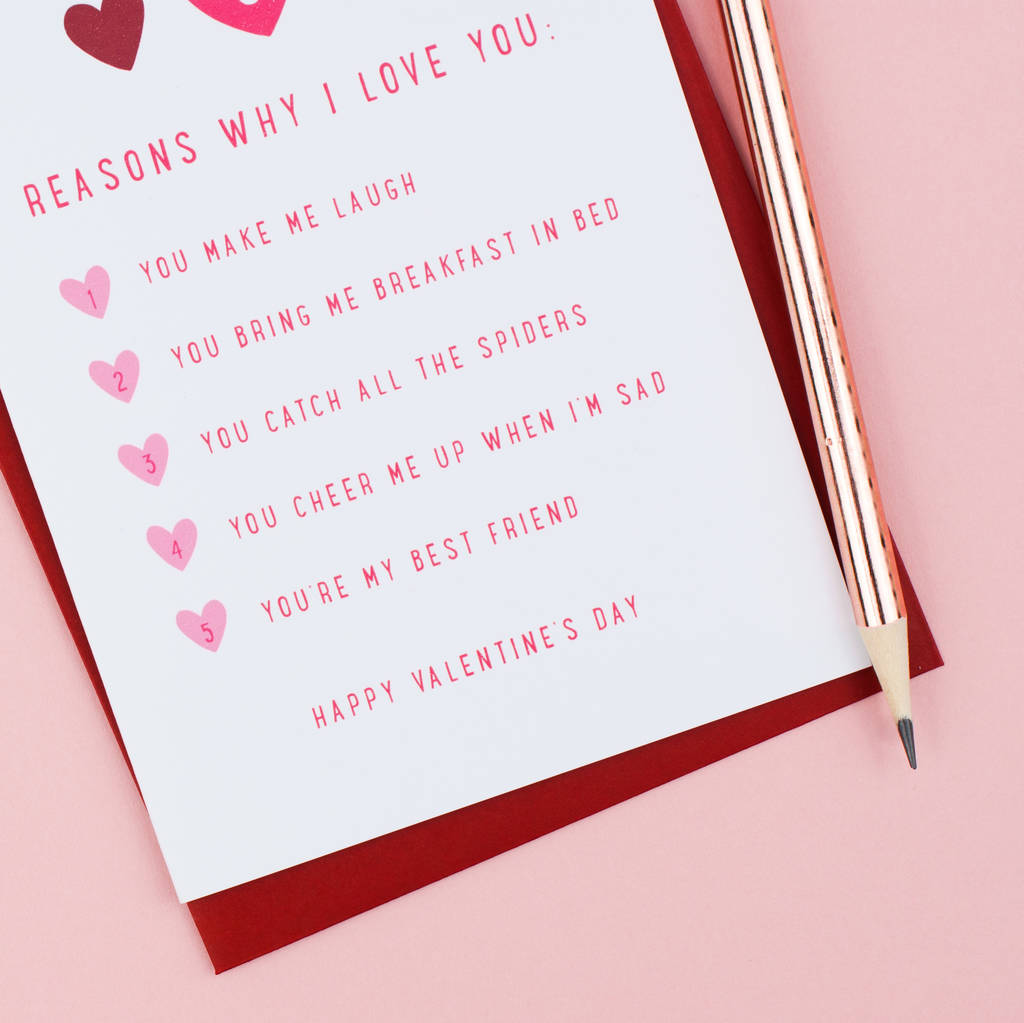 REASONS WHY I LOVE YOU:
1 YOU MAKE ME LAUGH
2 YOU BRING ME BREAKFAST IN BED
3 YOU CATCH ALL THE SPIDERS
4 YOU CHEER ME UP WHEN I'M SAD
5 YOU'RE MY BEST FRIEND
HAPPY VALENTINE'S DAY